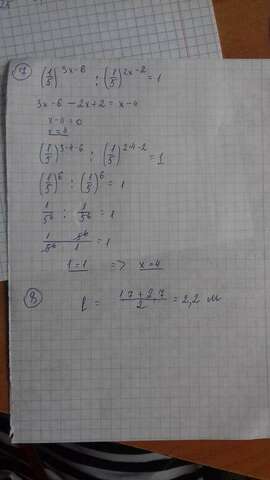 7 (1/5)^3x-6 : (1/5)^2x-2 = 1
3x-6 -2x+2 = x-4
x-4=0
x=4
(1/5)^3·4-6 : (1/5)^2·4-2 = 1
(1/5)^6 : (1/5)^6 = 1
1/5^6 : 1/5^6 = 1
1/5^6 5^6/1 = 1
1=1 => x=4
8 l = 1,7+2,7/2 = 2,2 м